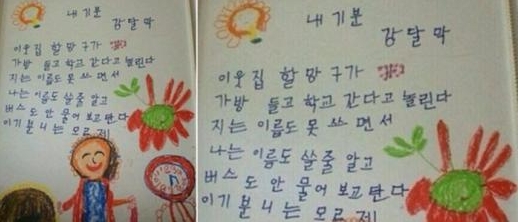 내 기분
강달막
이웃집 할망구가
가방 들고 학교 간다고 놀린다
지는 이름도 못 쓰면서
나는 이름도 쓸줄 알고
버스도 안 물어보고 탄다
이기분 니는 모르제
내 기분
강달막
이웃집 할망구가
가방 들고 학교 간다고 놀린다
지는 이름도 못 쓰면서
나는 이름도 쓸줄 알고
버스도 안 물어 보고 탄다
이기분 니는 모르제